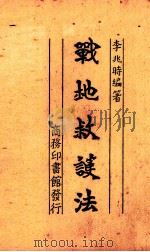 李兆時編著
戰地救護法
商務印書館發行
http://www.mtoou.info